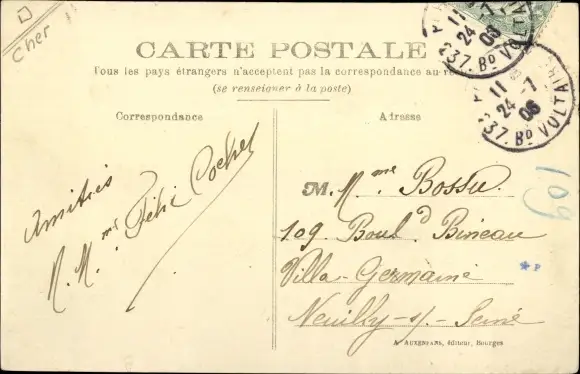 Cher
CARTE POSTALE
Tous les pays étrangers n'acceptent pas la correspondance au
(se renseigner à la poste)
Correspondance
Adresse
Amitiés
M. Mme Félix Cochet
M. Mme Bossu.
109 Bould Bineau
Villa-Germaine
Neuilly-s/-Seine
109
*P
A. AUXENFANS, éditeur, Bourges
11
24-7
06
37. Bd VOLTAIRE
11
24-7
06
37. Bd VOLTAIRE